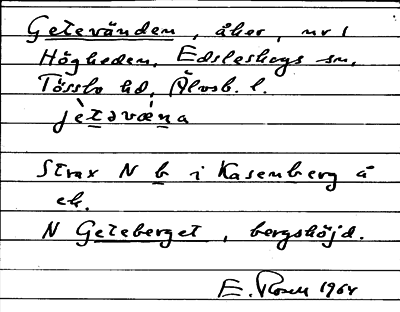 Getevänden, åker, nr 1
Högheden, Edsleskogs sn,
Tössbo hd, Älvsb. l.
jè̱tǝvæ̀na
Strax N b i Kasenberg å
ek.
N Geteberget, bergshöjd.
E. Rosell 1964